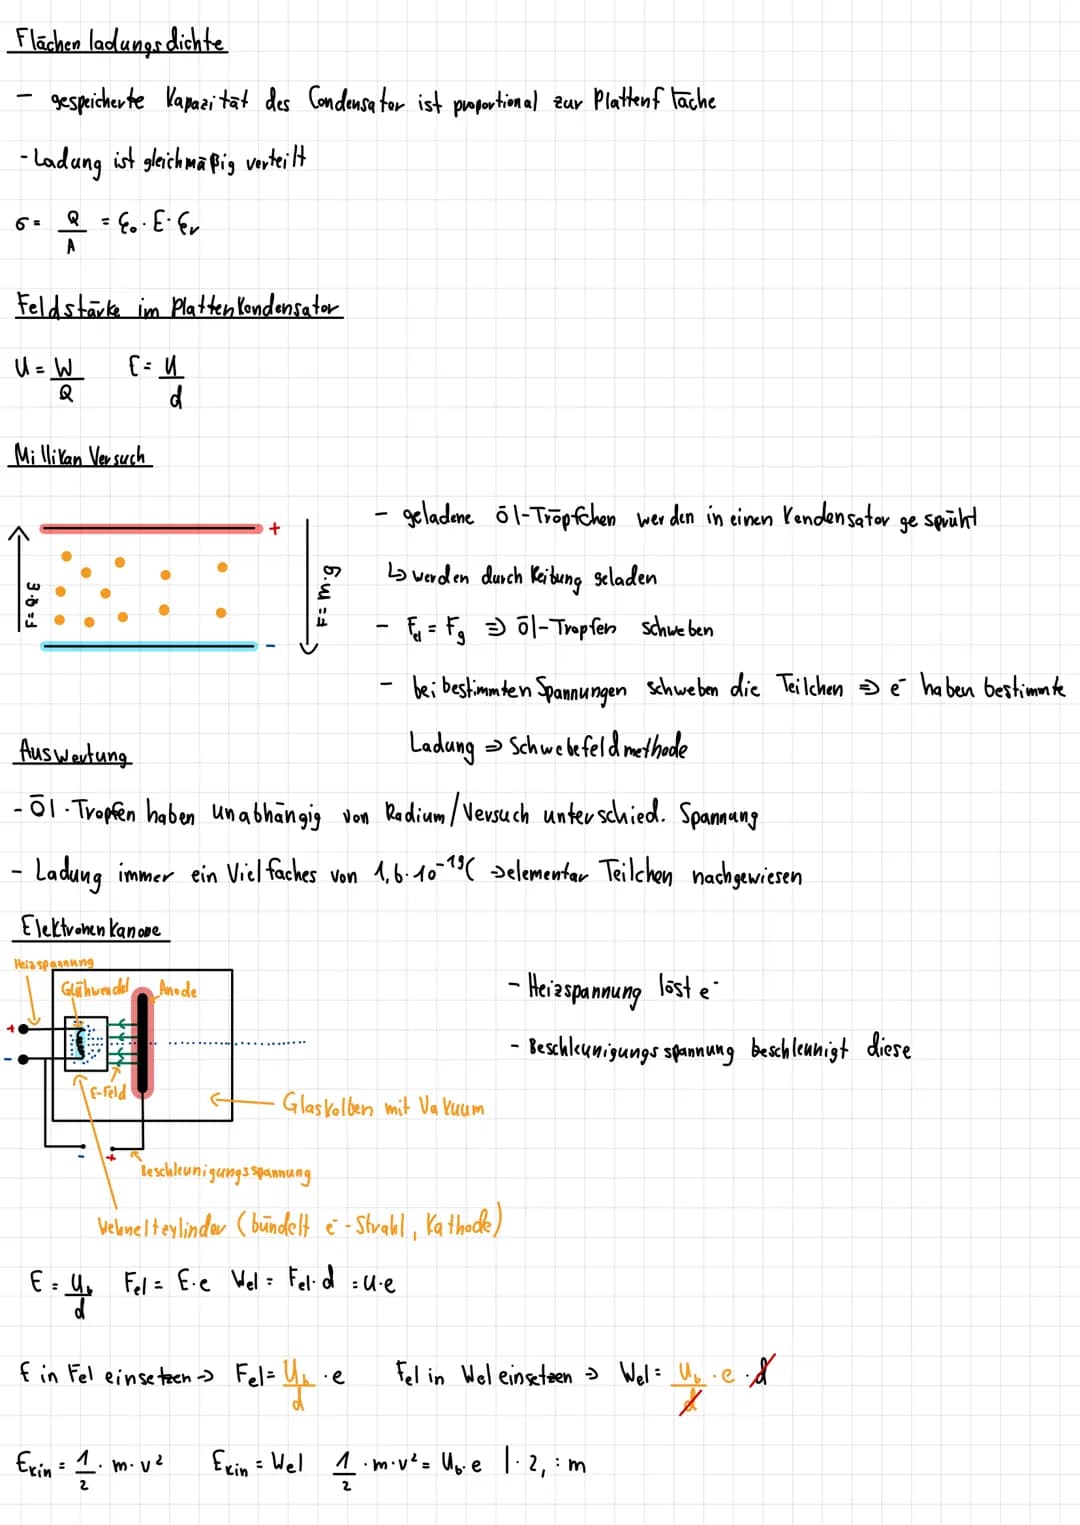 Flächenladungsdichte
- gespeicherte Kapazität des Condensator ist proportional zur Plattenfläche
- Ladung ist gleichmäßig verteilt
σ = Q/A = ε₀ · E · εᵣ
Feldstärke im Plattenkondensator
U = W/Q E = U/d
Millikan Versuch
- geladene Öl-Tröpfchen werden in einen Kondensator gesprüht
↳ werden durch Reibung geladen
- Fel = Fg ⇒ Öl-Tropfen schweben
- bei bestimmten Spannungen schweben die Teilchen ⇒ e⁻ haben bestimmte
Ladung ⇒ Schwebefeldmethode
+
-
F = Q·E
F = m·g
Auswertung
- Öl-Tropfen haben unabhängig von Radium/Versuch unterschied. Spannung
- Ladung immer ein Vielfaches von 1,6·10⁻¹⁹C ⇒ elementar Teilchen nachgewiesen
Elektronenkanone
Heizspannung
Glühwendel Anode
+
-
E-Feld
- Heizspannung löst e⁻
- Beschleunigungsspannung beschleunigt diese
Glaskolben mit Vakuum
- +
Beschleunigungsspannung
Wehneltzylinder (bündelt e⁻-Strahl, Kathode)
E = U_b/d Fel = E·e Wel = Fel·d = U·e
E in Fel einsetzen → Fel = U_b/d · e Fel in Wel einsetzen → Wel = U_b/d · e · d
Ekin = 1/2 · m · v² Ekin = Wel 1/2 · m · v² = U_b · e | · 2, : m